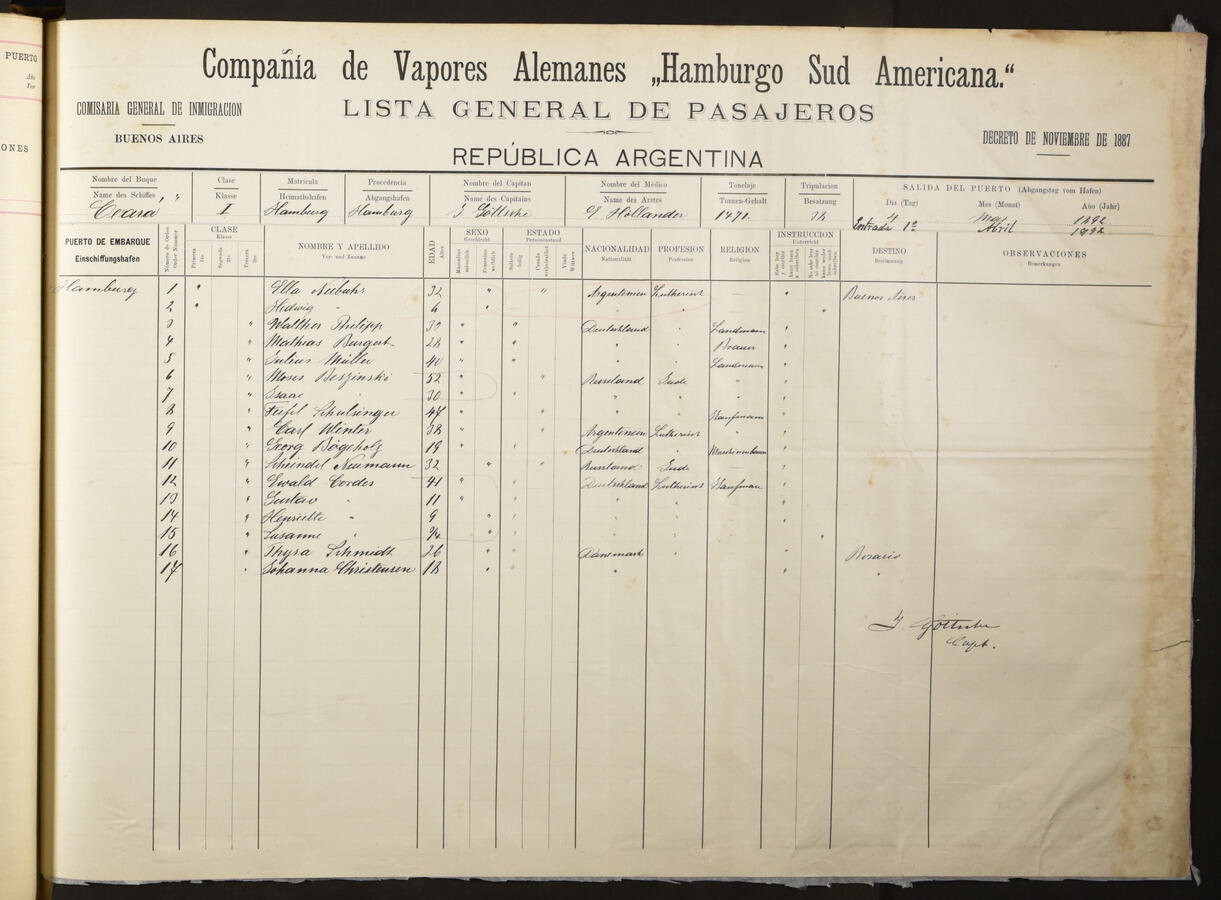 PUERTO
Año
ONES
Compañía de Vapores Alemanes „Hamburgo Sud Americana.“
COMISARIA GENERAL DE INMIGRACION
BUENOS AIRES
LISTA GENERAL DE PASAJEROS
DECRETO DE NOVIEMBRE DE 1887
REPÚBLICA ARGENTINA
Nombre del Buque Clase Matrícula Procedencia Nombre del Capitan Nombre del Médico Tonelaje Tripulacion SALIDA DEL PUERTO (Abgangstag vom Hafen)
Name des Schiffes Klasse Heimathshafen Abgangshafen Name des Capitains Name des Arztes Tonnen-Gehalt Besatzung Dia (Tag) Mes (Monat) Año (Jahr)
Ceará I Hamburg Hamburg J Göttsche G Hollander 1471 38 4 Mar 1892
Entrada 1º Abril 1892
PUERTO DE EMBARQUE Einschiffungshafen
Número de Orden Order Nummer
CLASE Klasse Primera 1te Segunda 2te Tercera 3te
NOMBRE Y APELLIDO Vor- und Zuname
EDAD Alter
SEXO Geschlecht Masculino männlich Femenino weiblich
ESTADO Personenstand Soltero ledig Casado verheirathet Viudo Wittwer
NACIONALIDAD Nationalität
PROFESION Profession
RELIGION Religion
INSTRUCCION Unterricht
DESTINO Bestimmung
OBSERVACIONES Bemerkungen
Hamburg 1 " Ella Niebuhr 32 " " Argentinien Lutherisch — " Buenos Aires
2 " Hedwig " 6 " " " "
3 " Walther Philipp 30 " " Deutschland " Landmann "
4 " Mathias Burgert 28 " " " " Brauer "
5 " Julius Müller 40 " " " " Landmann "
6 " Moses Beszinski 52 " " Russland Jude " "
7 " Isaac " 30 " " " " "
8 " Feifel Schulsinger 47 " " " " Kaufmann "
9 " Carl Winter 38 " " Argentinien Lutherisch " "
10 " Georg Bögeholz 19 " " Deutschland " Maschinenbauer "
11 " Scheindel Neumann 32 " " Russland Jude — "
12 " Ewald Cordes 41 " " Deutschland Lutherisch Kaufmann "
13 " Gustav " 11 " " " " "
14 " Henriette " 9 " " " " "
15 " Susanne " " " " " "
16 " Thyra Schmidt 26 " " Dänemark " " Rosario
17 " Johanna Christensen 18 " " " " "
J. Göttsche
Capt.